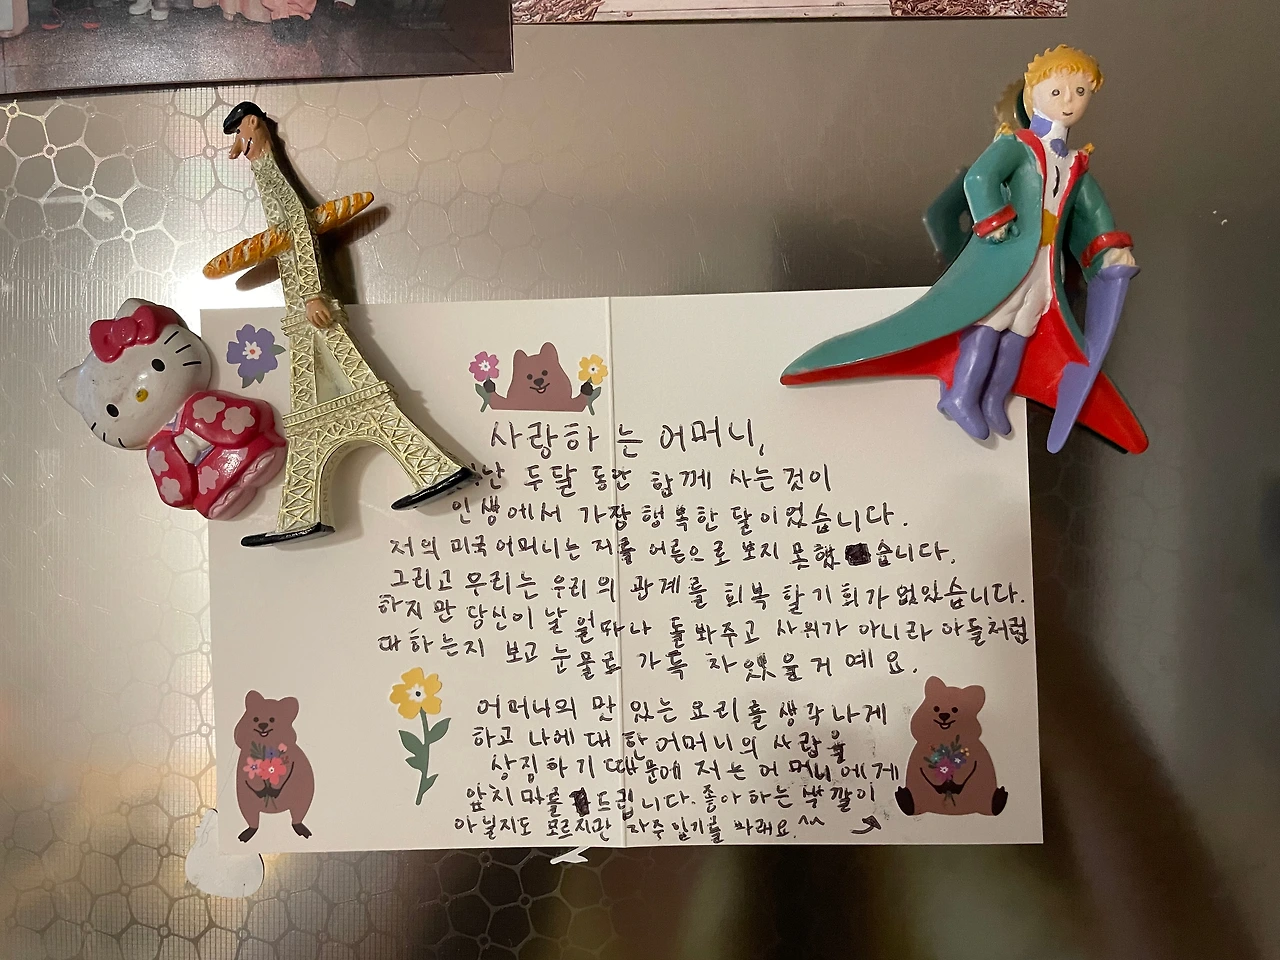 사랑하는 어머니,
두 달 동안 함께 사는 것이
인생에서 가장 행복한 달이었습니다.
저의 미국 어머니는 저를 어른으로 보지 못했습니다.
그리고 우리는 우리의 관계를 회복할 기회가 없었습니다.
하지만 당신이 날 얼마나 돌봐주고 사위가 아니라 아들처럼
대하는지 보고 눈물로 가득 차 있을 거예요.
어머니의 맛있는 요리를 생각나게
하고 나에 대한 어머니의 사랑을
상징하기 때문에 저는 어머니에게
앞치마를 드립니다. 좋아하는 색깔이
아닐지도 모르지만 자주 입기를 바래요.^^